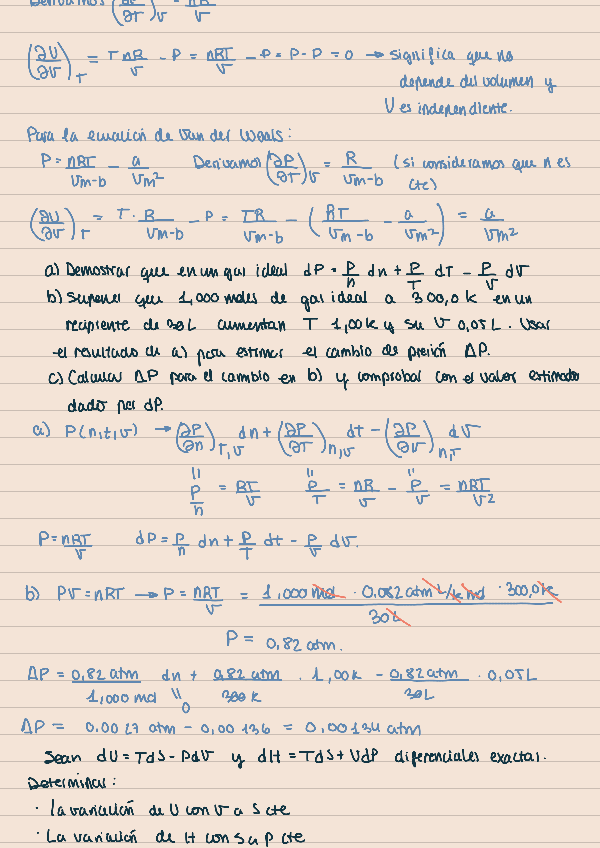 Derivamos (∂P/∂T)_V = nR/V
(∂U/∂V)_T = T nR/V - P = nRT/V - P = P - P = 0 → significa que no
depende del volumen y
U es independiente.
Para la ecuación de Van der Waals:
P = nRT/(Vm-b) - a/Vm² Derivamos (∂P/∂T)_V = R/(Vm-b) (si consideramos que n es
cte)
(∂U/∂V)_T = T · R/(Vm-b) - P = TR/(Vm-b) - (RT/(Vm-b) - a/Vm²) = a/Vm²
a) Demostrar que en un gas ideal dP = P/n dn + P/T dT - P/V dV
b) Suponer que 1,000 moles de gas ideal a 300,0 K en un
recipiente de 30L aumentan T 1,00K y su V 0,05L. Usar
el resultado de a) para estimar el cambio de presión ΔP.
c) Calcular ΔP para el cambio en b) y comprobar con el valor estimado
dado por dP.
a) P(n,t,v) → (∂P/∂n)_T,V dn + (∂P/∂T)_n,V dt - (∂P/∂V)_n,T dV
" " "
P/n = RT/V P/T = nR/V - P/V = nRT/V²
P = nRT/V dP = P/n dn + P/T dt - P/V dV.
b) PV = nRT → P = nRT/V = 1,000 mol · 0,082 atm L/k mol · 300,0k / 30L
P = 0,82 atm.
ΔP = 0,82 atm/1,000 mol dn + 0,82 atm/300 k · 1,00k - 0,82 atm/30L · 0,05L
" 0
ΔP = 0,0027 atm - 0,00136 = 0,00134 atm
Sean dU = TdS - PdV y dH = TdS + VdP diferenciales exactas.
Determinar:
· la variación de U con V a S cte
· La variación de H con S a P cte